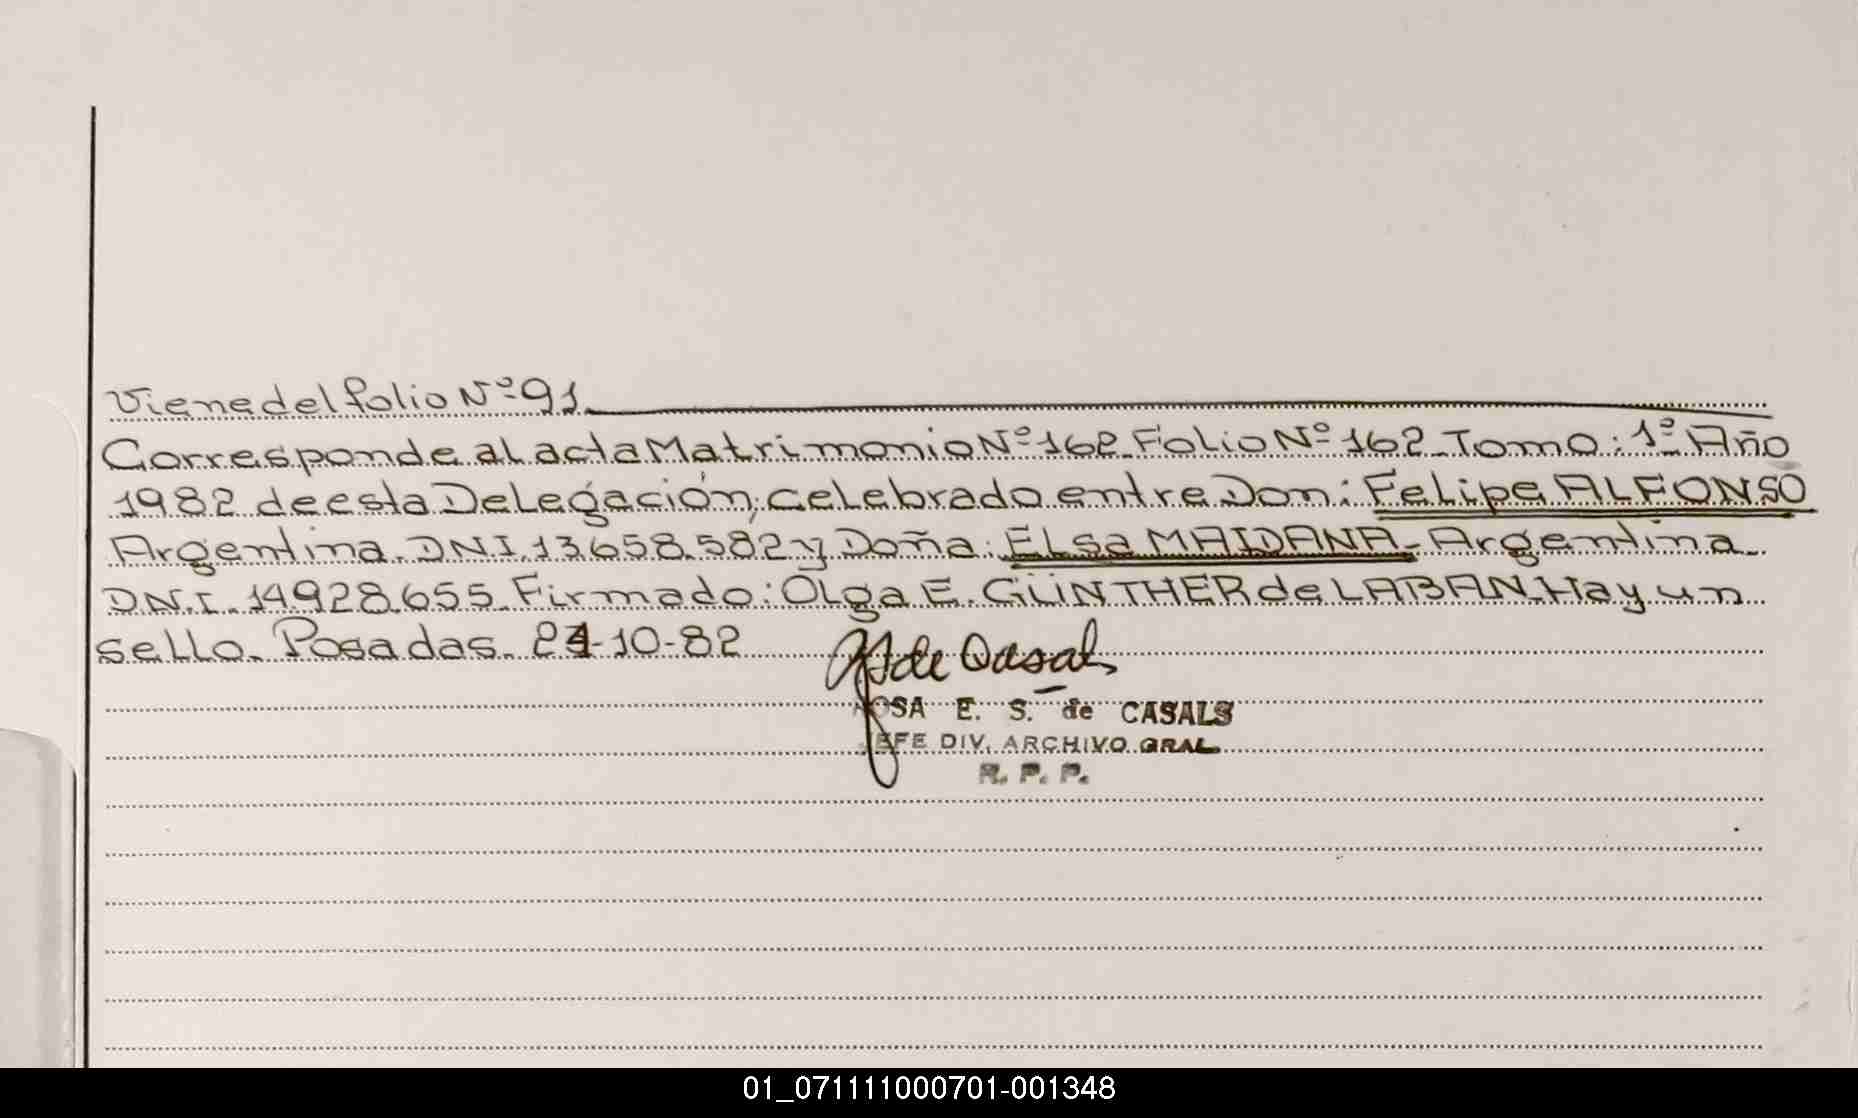 Viene del folio Nº 91
Corresponde al acta Matrimonio Nº 162 Folio Nº 162 Tomo: 1º Año
1982 de esta Delegación, celebrado entre Don: Felipe ALFONSO
Argentina. DNI. 13.658.582 y Doña: ELsa MAIDANA- Argentina
D.N.I. 14.928.655. Firmado: Olga E. GÜNTHER de LABAN. Hay un
sello. Posadas. 21-10-82
de Casals
ROSA E. S. de CASALS
JEFE DIV. ARCHIVO GRAL.
R. P. P.
01_071111000701-001348